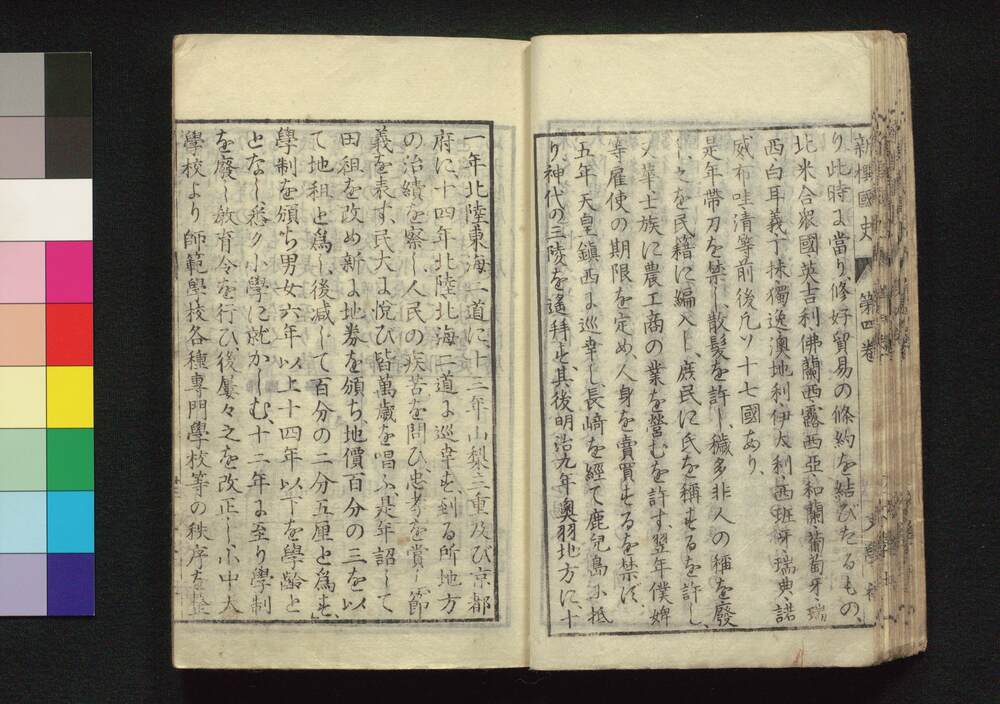 新撰國史 第四卷
り、此時に當り、修好貿易の條約を結びたるもの、
北米合衆國、英吉利、佛蘭西、露西亞、和蘭、葡萄牙、瑞
西、白耳義、丁抹、獨逸、澳地利、伊太利、西班牙、瑞典、諾
威、布哇、清等前後凡ソ十七國あり、
是年帶刀を禁し、散髮を許し、穢多非人の稱を廢
し、之を民籍に編入し、庶民に氏を稱するを許し、
又華士族に農工商の業を營むを許す、翌年僕婢
等雇使の期限を定め、人身を賣買するを禁ず、
五年天皇鎮西に巡幸し、長崎を經て鹿兒島に抵
り、神代の三陵を遙拜す、其後明治九年奧羽地方に、十
一年北陸東海二道に、十三年山梨三重及び京都
府に、十四年北陸北海二道に巡幸す、到る所地方
の治績を察し、人民の疾苦を問ひ、忠孝を賞し、節
義を表す、民大に悅び皆萬歲を唱ふ、是年詔して
田租を改め新に地券を頒ち、地價百分の三を以
て地租と爲し、後減じて百分の二分五厘と爲す、
學制を頒ち男女六年以上十四年以下を學齡と
となし、悉ク小學に就かしむ、十二年に至り學制
を廢し教育令を行ひ後屢々之を改正し、小中大
學校より師範學校各種專門學校等の秩序を整